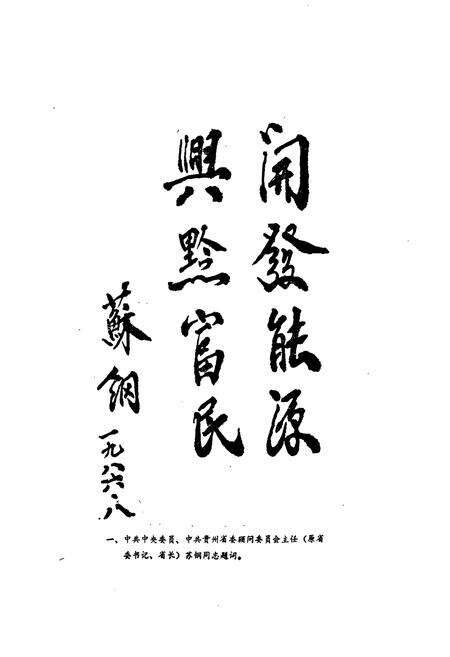 開發能源
興黔富民
蘇鋼
一九八六.八
一、中共中央委员、中共贵州省委顾问委员会主任（原省
委书记、省长）苏钢同志题词。